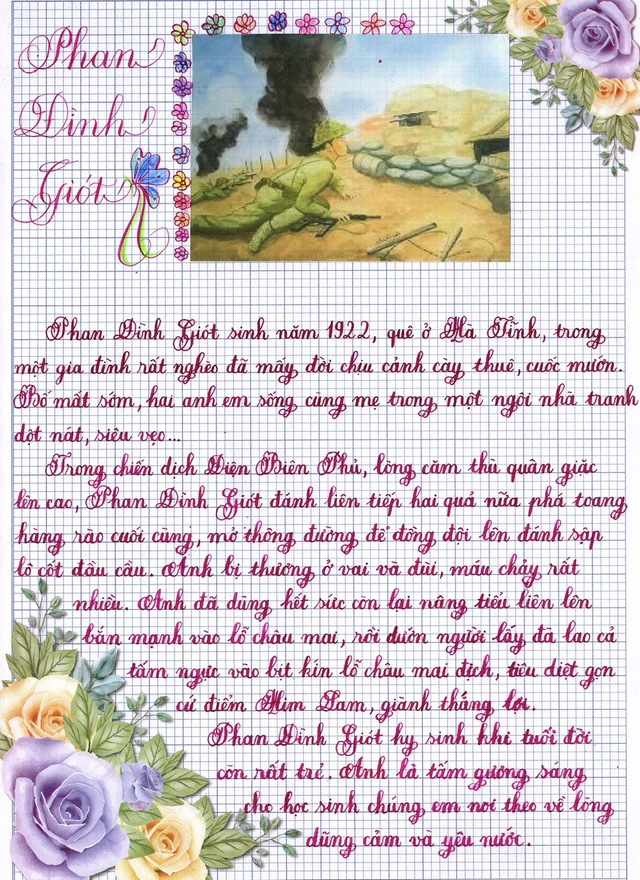 Phan
Đình
Giót
Phan Đình Giót sinh năm 1922, quê ở Hà Tĩnh, trong
một gia đình rất nghèo đã mấy đời chịu cảnh cày thuê, cuốc mướn.
Bố mất sớm, hai anh em sống cùng mẹ trong một ngôi nhà tranh
dột nát, siêu vẹo...
Trong chiến dịch Điện Biên Phủ, lòng căm thù quân giặc
lên cao, Phan Đình Giót đánh liên tiếp hai quả nữa phá toang
hàng rào cuối cùng, mở thông đường để đồng đội lên đánh sập
lô cốt đầu cầu. Anh bị thương ở vai và đùi, máu chảy rất
nhiều. Anh đã dùng hết sức còn lại nâng tiểu liên lên
bắn mạnh vào lỗ châu mai, rồi dướn người lấy đà lao cả
tấm ngực vào bịt kín lỗ châu mai địch, tiêu diệt gọn
cứ điểm Him Lam, giành thắng lợi.
Phan Đình Giót hy sinh khi tuổi đời
còn rất trẻ. Anh là tấm gương sáng
cho học sinh chúng em noi theo về lòng
dũng cảm và yêu nước.